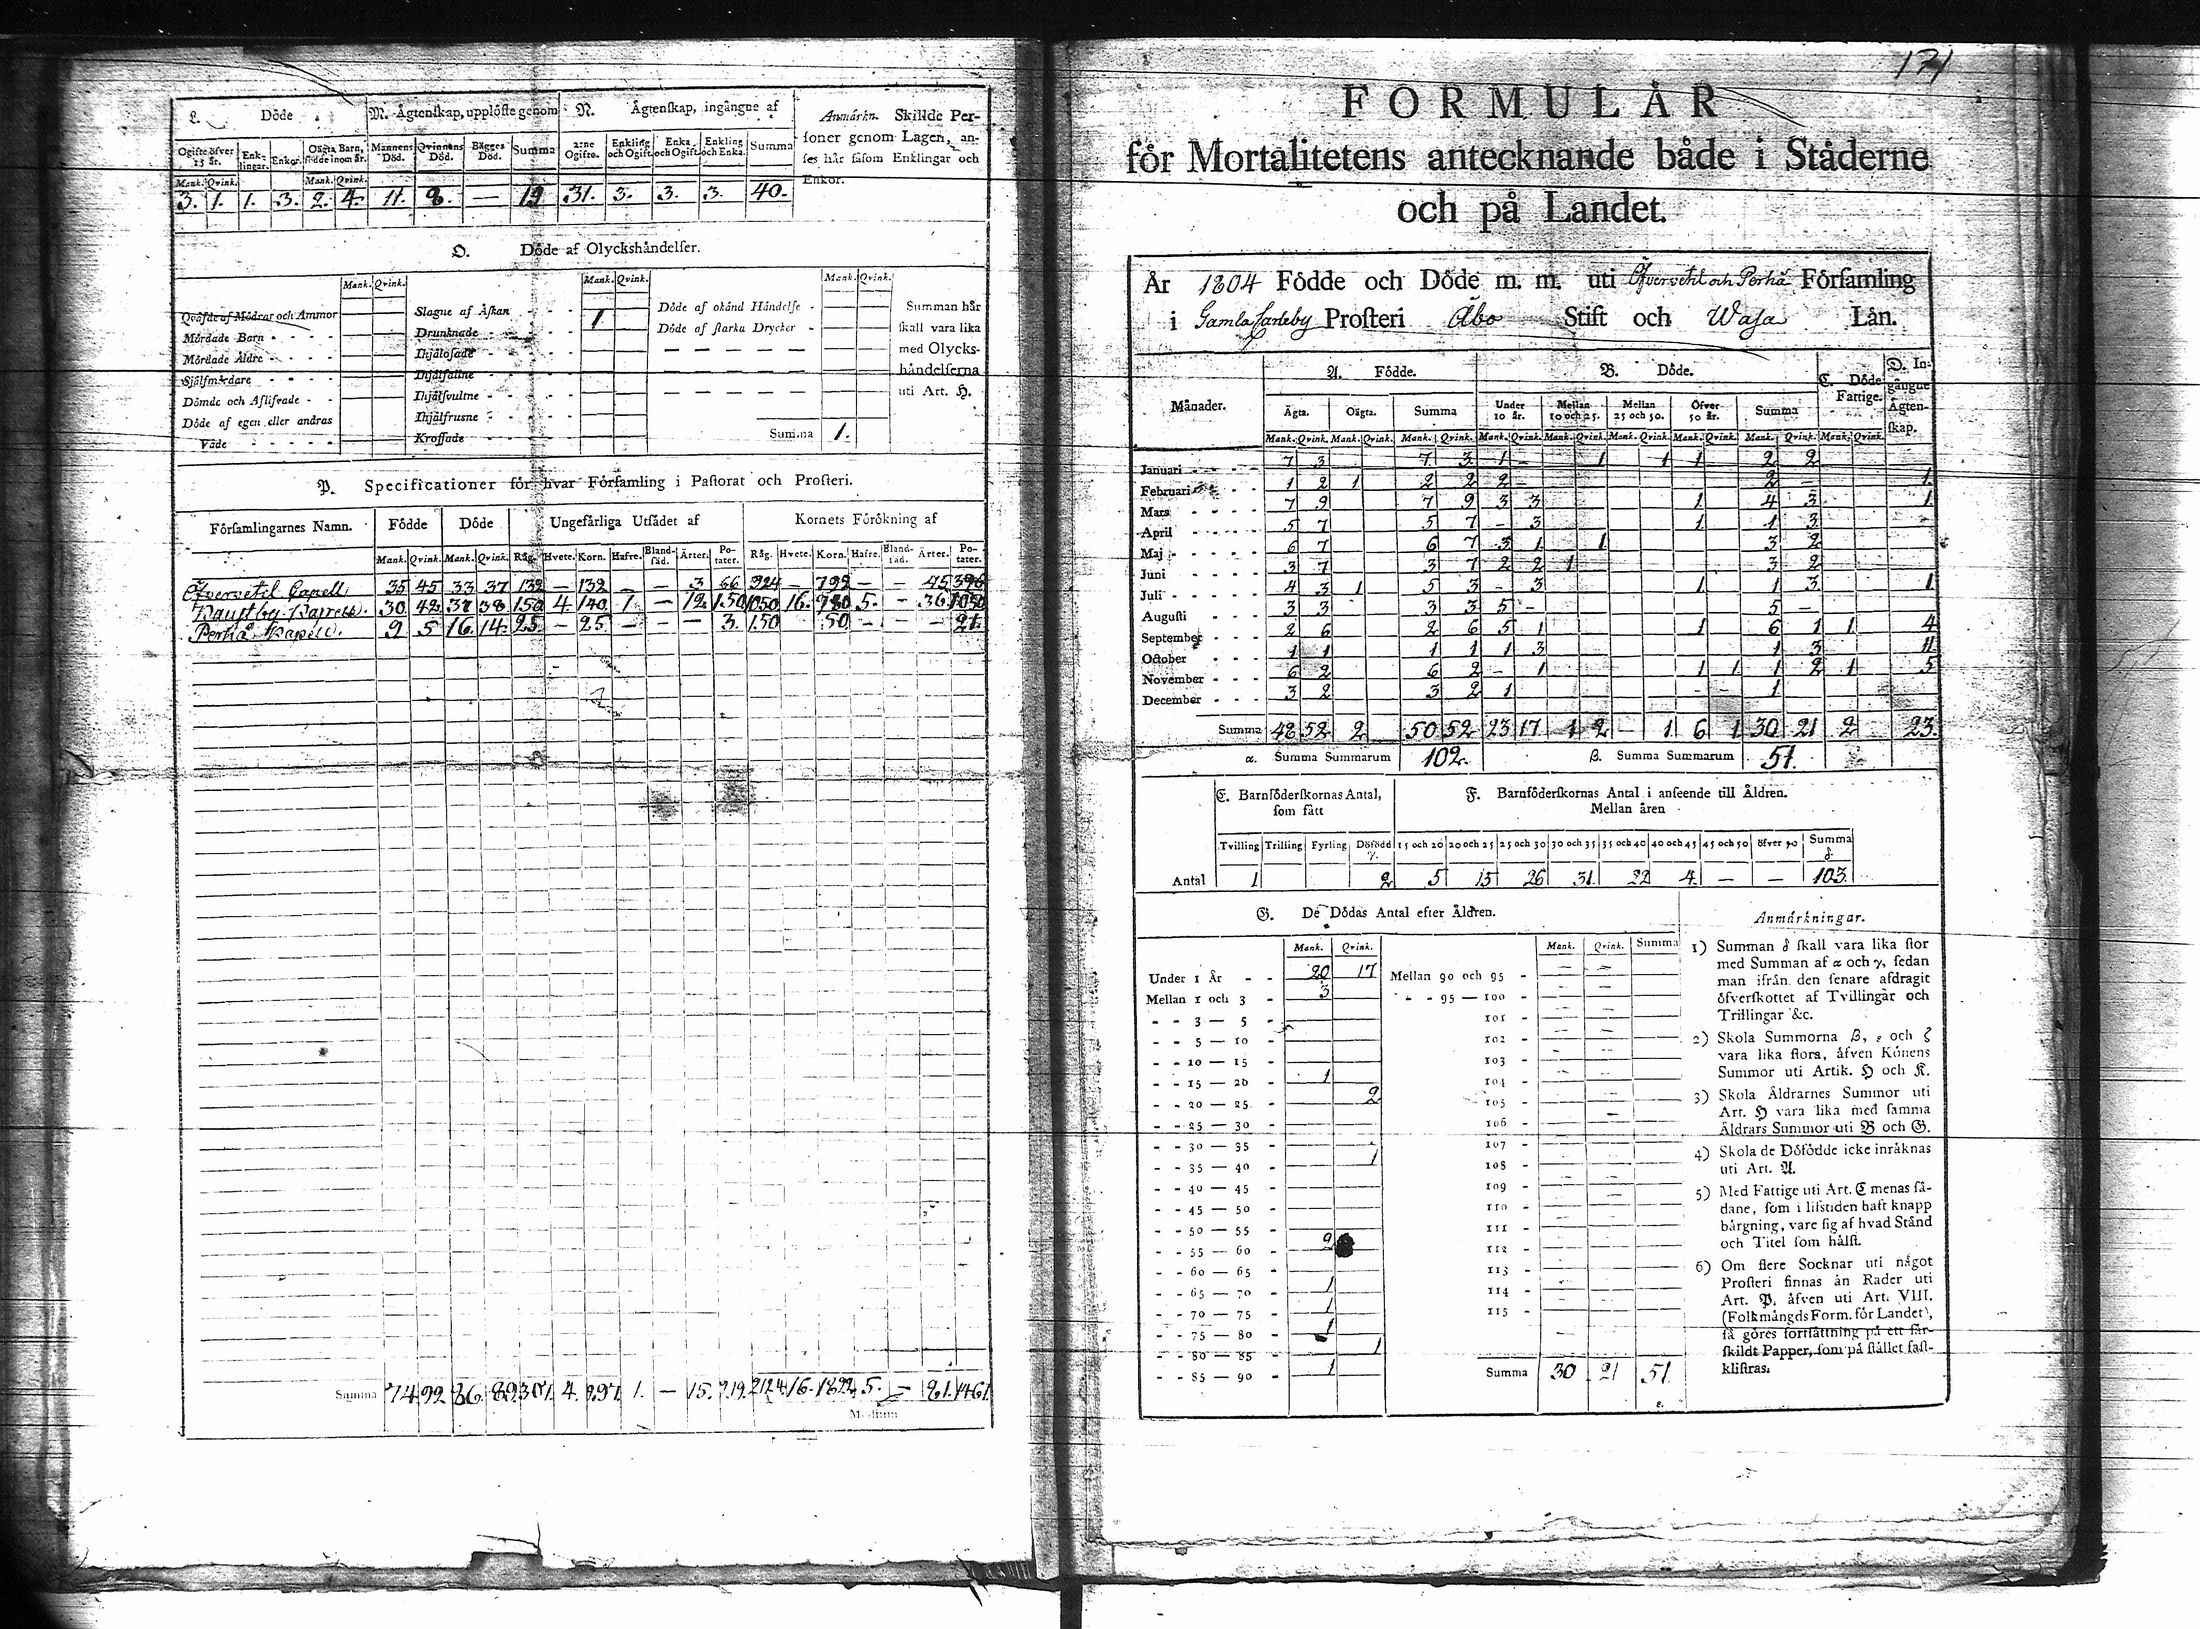 L. Döde M. Ägtenskap, upplöste genom N. Ägtenskap, ingångne af
Ogifte öfver 15 år. Enklingar. Enkor. Oägta Barn, födde inom år. Mannens Död. Qvinnans Död. Bägges Död. Summa 2:ne Ogifte. Enkling och Ogift. Enka och Ogift. Enkling och Enka. Summa
Mank. Qvink. Mank. Qvink.
3. 1. 1. 3. 2. 4. 11. 8. — 19 31. 3. 3. 3. 40.
Anmärkn. Skillde Per-
soner genom Lagen, an-
ses här såsom Enklingar och
Enkor.
O. Döde af Olyckshändelser.
Mank. Qvink. Mank. Qvink. Mank. Qvink.
Qväfde af Mödrar och Ammor
Mördade Barn
Mördade Äldre
Själfmördare
Dömde och Aflifvade
Döde af egen eller andras
Våde
Slagne af Åskan
Drunknade 1.
Ihjälosade
Ihjälfallne
Ihjälsvultne
Ihjälfrusne
Krossade
Döde af okänd Händelse
Döde af starka Drycker
Summa 1.
Summan här
skall vara lika
med Olycks-
händelserna
uti Art. H.
P. Specificationer för hvar Församling i Pastorat och Prosteri.
Församlingarnes Namn. Födde Döde Ungefärliga Utsädet af Kornets Förökning af
Mank. Qvink. Mank. Qvink. Råg. Hvete. Korn. Hafre. Bland-säd. Ärter. Po-tater. Råg. Hvete. Korn. Hafre. Bland-säd. Ärter. Po-tater.
Öfvervetil Capell 35 45 33 37 132 — 132 — — 3 66 924 — 792 — — 45 396
30 42 37 38 150 4 140 1 — 12 150 1050 16. 980 5. — 36 1050
Perhå Capell. 9 5 16. 14. 25. — 25. — — — 3. 150 50 — — — 21.
Summa 74 92 86. 89. 307. 4. 297. 1. — 15. 219. 2124. 16. 1822. 5. — 81. 1461.
171
FORMULÅR
för Mortalitetens antecknande både i Städerne
och på Landet.
År 1804 Födde och Döde m. m. uti Öfvervetil och Perhå Församling
i Gamla Carleby Prosteri Åbo Stift och Wasa Län.
Månader. A. Födde. B. Döde. C. Döde Fattige. D. Ingångne Ägtenskap.
Ägta. Oägta. Summa Under 10 år. Mellan 10 och 25. Mellan 25 och 50. Öfver 50 år. Summa
Mank. Qvink. Mank. Qvink. Mank. Qvink. Mank. Qvink. Mank. Qvink. Mank. Qvink. Mank. Qvink. Mank. Qvink. Mank. Qvink.
Januari 7 3 7 3 1 - 1 1 1 2 2
Februari 1 2 1 2 2 2 - 2 - 1.
Mars 7 9 7 9 3 3 1. 4 3 1.
April 5 7 5 7 - 3 1. 1 3
Maj 6 7 6 7 3 1 1 3 2
Juni 3 7 3 7 2 2 1 3 2
Juli 4 3 1 5 3 - 3 1 1 3 1
Augusti 3 3 3 3 5 - 5 -
September 2 6 2 6 5 1 1 6 1 1 4
October 1 1 1 1 1 3 1 3 11.
November 6 2 6 2 - 1 1 1 1 2 1 5
December 3 2 3 2 1 - - 1
Summa 48 52 2 50 52 23 17 1 2 — 1 6 1 30 21 2 23.
α. Summa Summarum 102. β. Summa Summarum 51.
E. Barnföderskornas Antal, som fått
F. Barnföderskornas Antal i anseende till Åldren.
Mellan åren
Tvilling Trilling Fyrling Dödfödd γ. 15 och 20 20 och 25 25 och 30 30 och 35 35 och 40 40 och 45 45 och 50 öfver 50 Summa δ
Antal 1 2 5 15 26 31. 22 4. — — 103.
G. De Dödas Antal efter Åldren.
Mank. Qvink. Mank. Qvink. Summa
Under 1 År 20 17 Mellan 90 och 95
Mellan 1 och 3 3 95 — 100
3 — 5 101
5 — 10 102
10 — 15 103
15 — 20 1 104
20 — 25 2 105
25 — 30 106
30 — 35 107
35 — 40 1 108
40 — 45 109
45 — 50 110
50 — 55 111
55 — 60 2 112
60 — 65 113
65 — 70 1 114
70 — 75 1 115
75 — 80 1
80 — 85 1
85 — 90 1 Summa 30 21 51.
Anmärkningar.
1) Summan δ skall vara lika stor
med Summan af α och γ, sedan
man ifrån den senare afdragit
öfverskottet af Tvillingar och
Trillingar &c.
2) Skola Summorna β, ε och ζ
vara lika stora, äfven Könens
Summor uti Artik. H och K.
3) Skola Åldrarnes Summor uti
Art. H vara lika med samma
Åldrars Summor uti B och G.
4) Skola de Dödfödde icke inräknas
uti Art. A.
5) Med Fattige uti Art. C menas så-
dane, som i lifstiden haft knapp
bärgning, vare sig af hvad Stånd
och Titel som hälst.
6) Om flere Socknar uti något
Prosteri finnas än Rader uti
Art. P, äfven uti Art. VIII.
(Folkmängds Form. för Landet),
så göres fortsättning på ett sär-
skildt Papper, som på stället fast-
klistras.